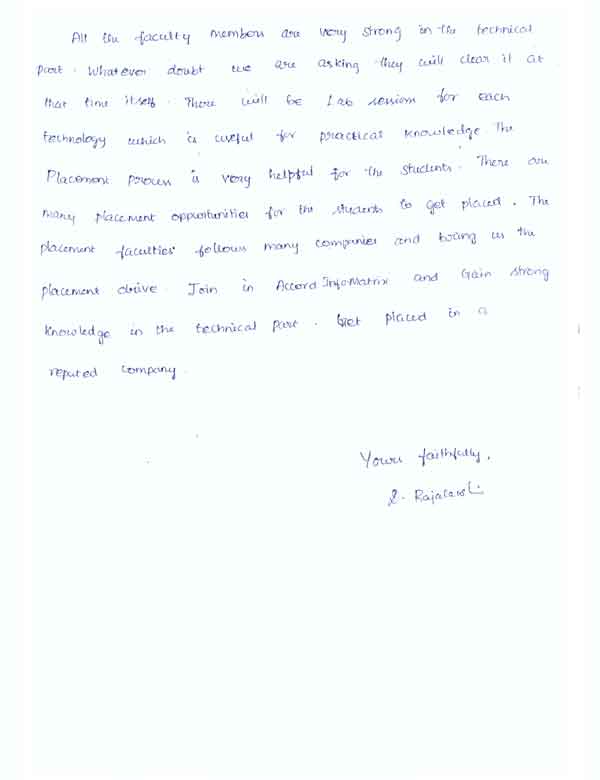 All the faculty members are very strong in the technical
part. Whatever doubt we are asking they will clear it at
that time itself. There will be Lab session for each
technology which is useful for practical knowledge. The
Placement process is very helpful for the students. There are
many placement opportunities for the students to get placed. The
placement faculties follows many companies and bring us the
placement drive. Join in Accord InfoMatrix and Gain strong
knowledge in the technical part. Get placed in a
reputed company.
Yours faithfully,
S. Rajalaxmi